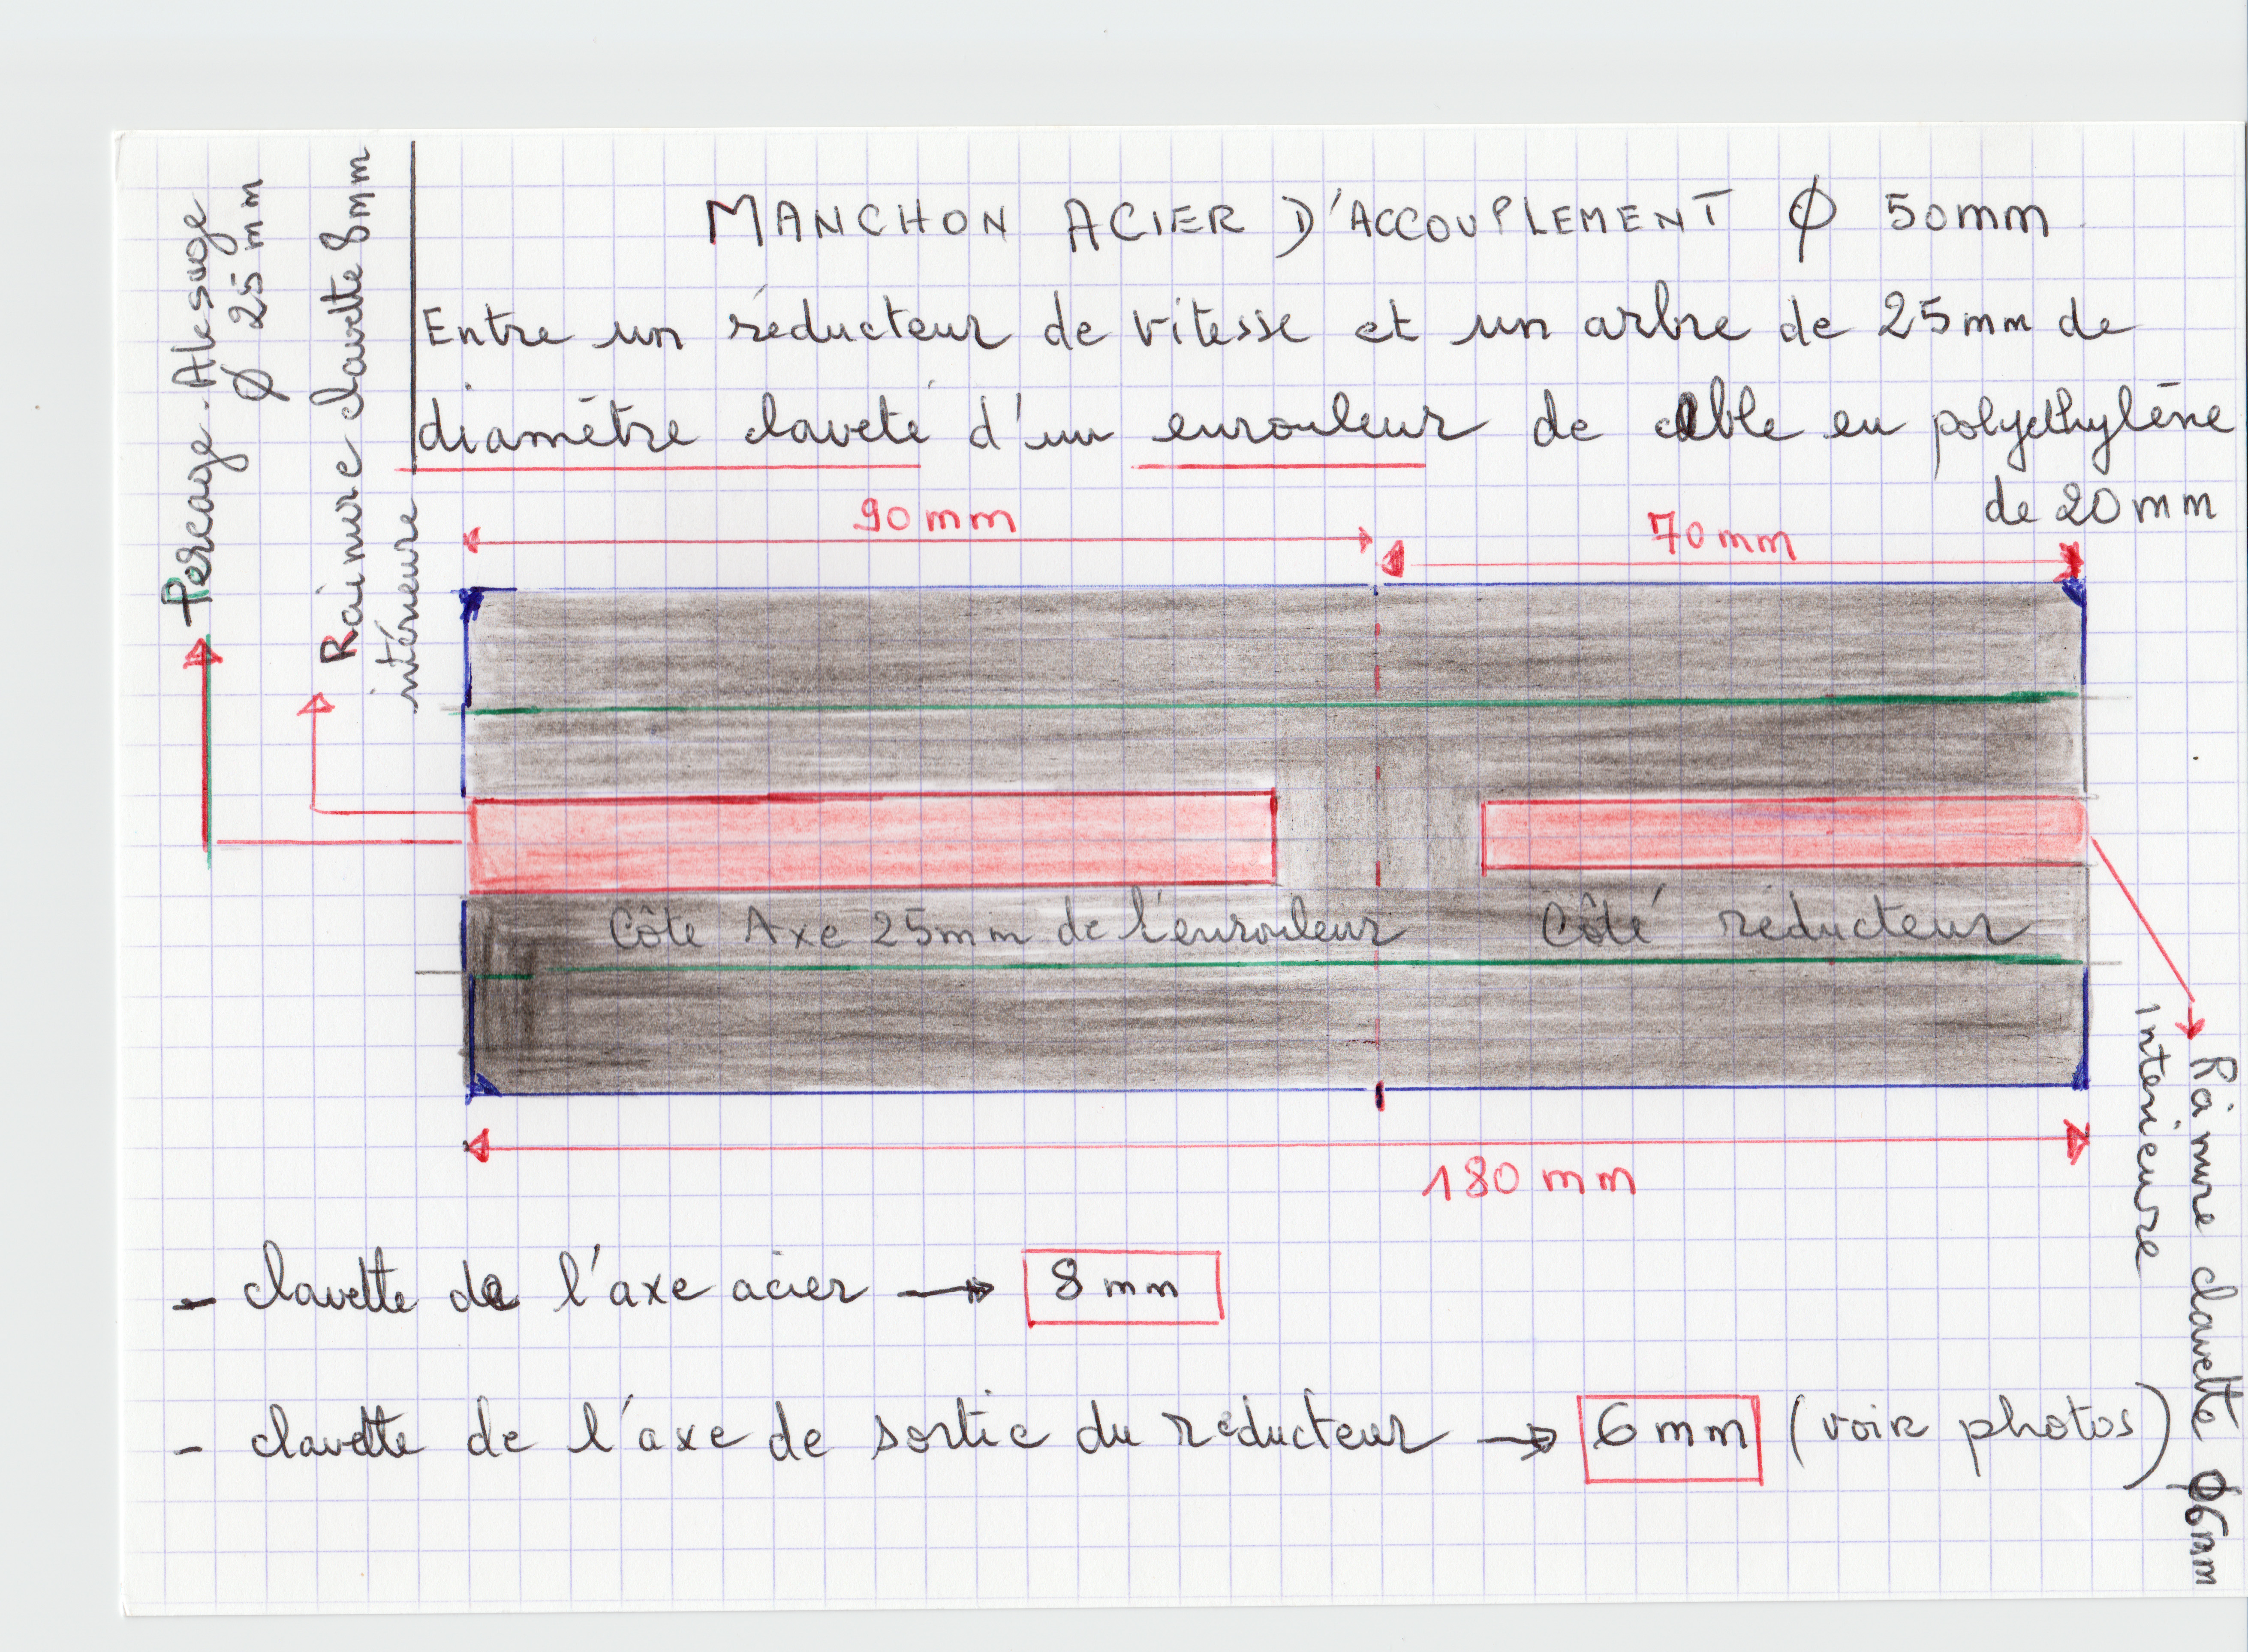 MANCHON ACIER D'ACCOUPLEMENT Ø 50mm
Entre un réducteur de vitesse et un arbre de 25mm de
diamètre claveté d'un enrouleur de câble en polyéthylène
de 20mm
Percage. Alesage
Ø 25mm
Rainure clavette 8mm
intérieure
90mm
70mm
Côté Axe 25mm de l'enrouleur
Côté réducteur
180 mm
Rainure clavette Ø6mm
interieure
- clavette de l'axe acier → 8 mm
- clavette de l'axe de sortie du réducteur → 6mm (voir photos)